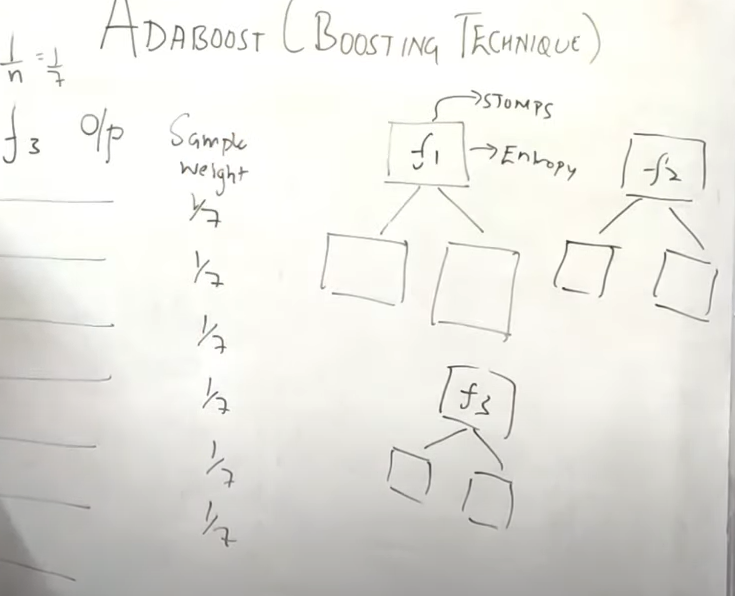 ADABOOST (BOOSTING TECHNIQUE)
1/n = 1/7
f3 O/p Sample weight
1/7
1/7
1/7
1/7
1/7
1/7
→STOMPS
f1 →Entropy
f2
f3